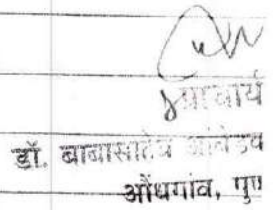 प्राचार्य
डॉ. बाबासाहेब आंबेडक
औंधगांव, पु